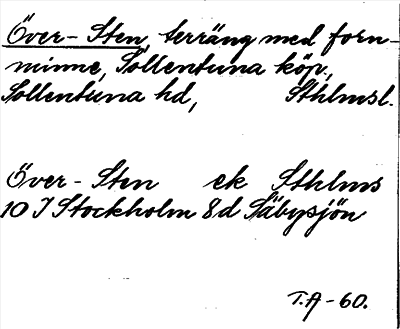 Över-Sten, terräng med forn-
minne, Sollentuna köp,
Sollentuna hd, Sthlmsl.
Över-Sten ek Sthlms
10 I Stockholm 8d Säbysjön
T.A-60.